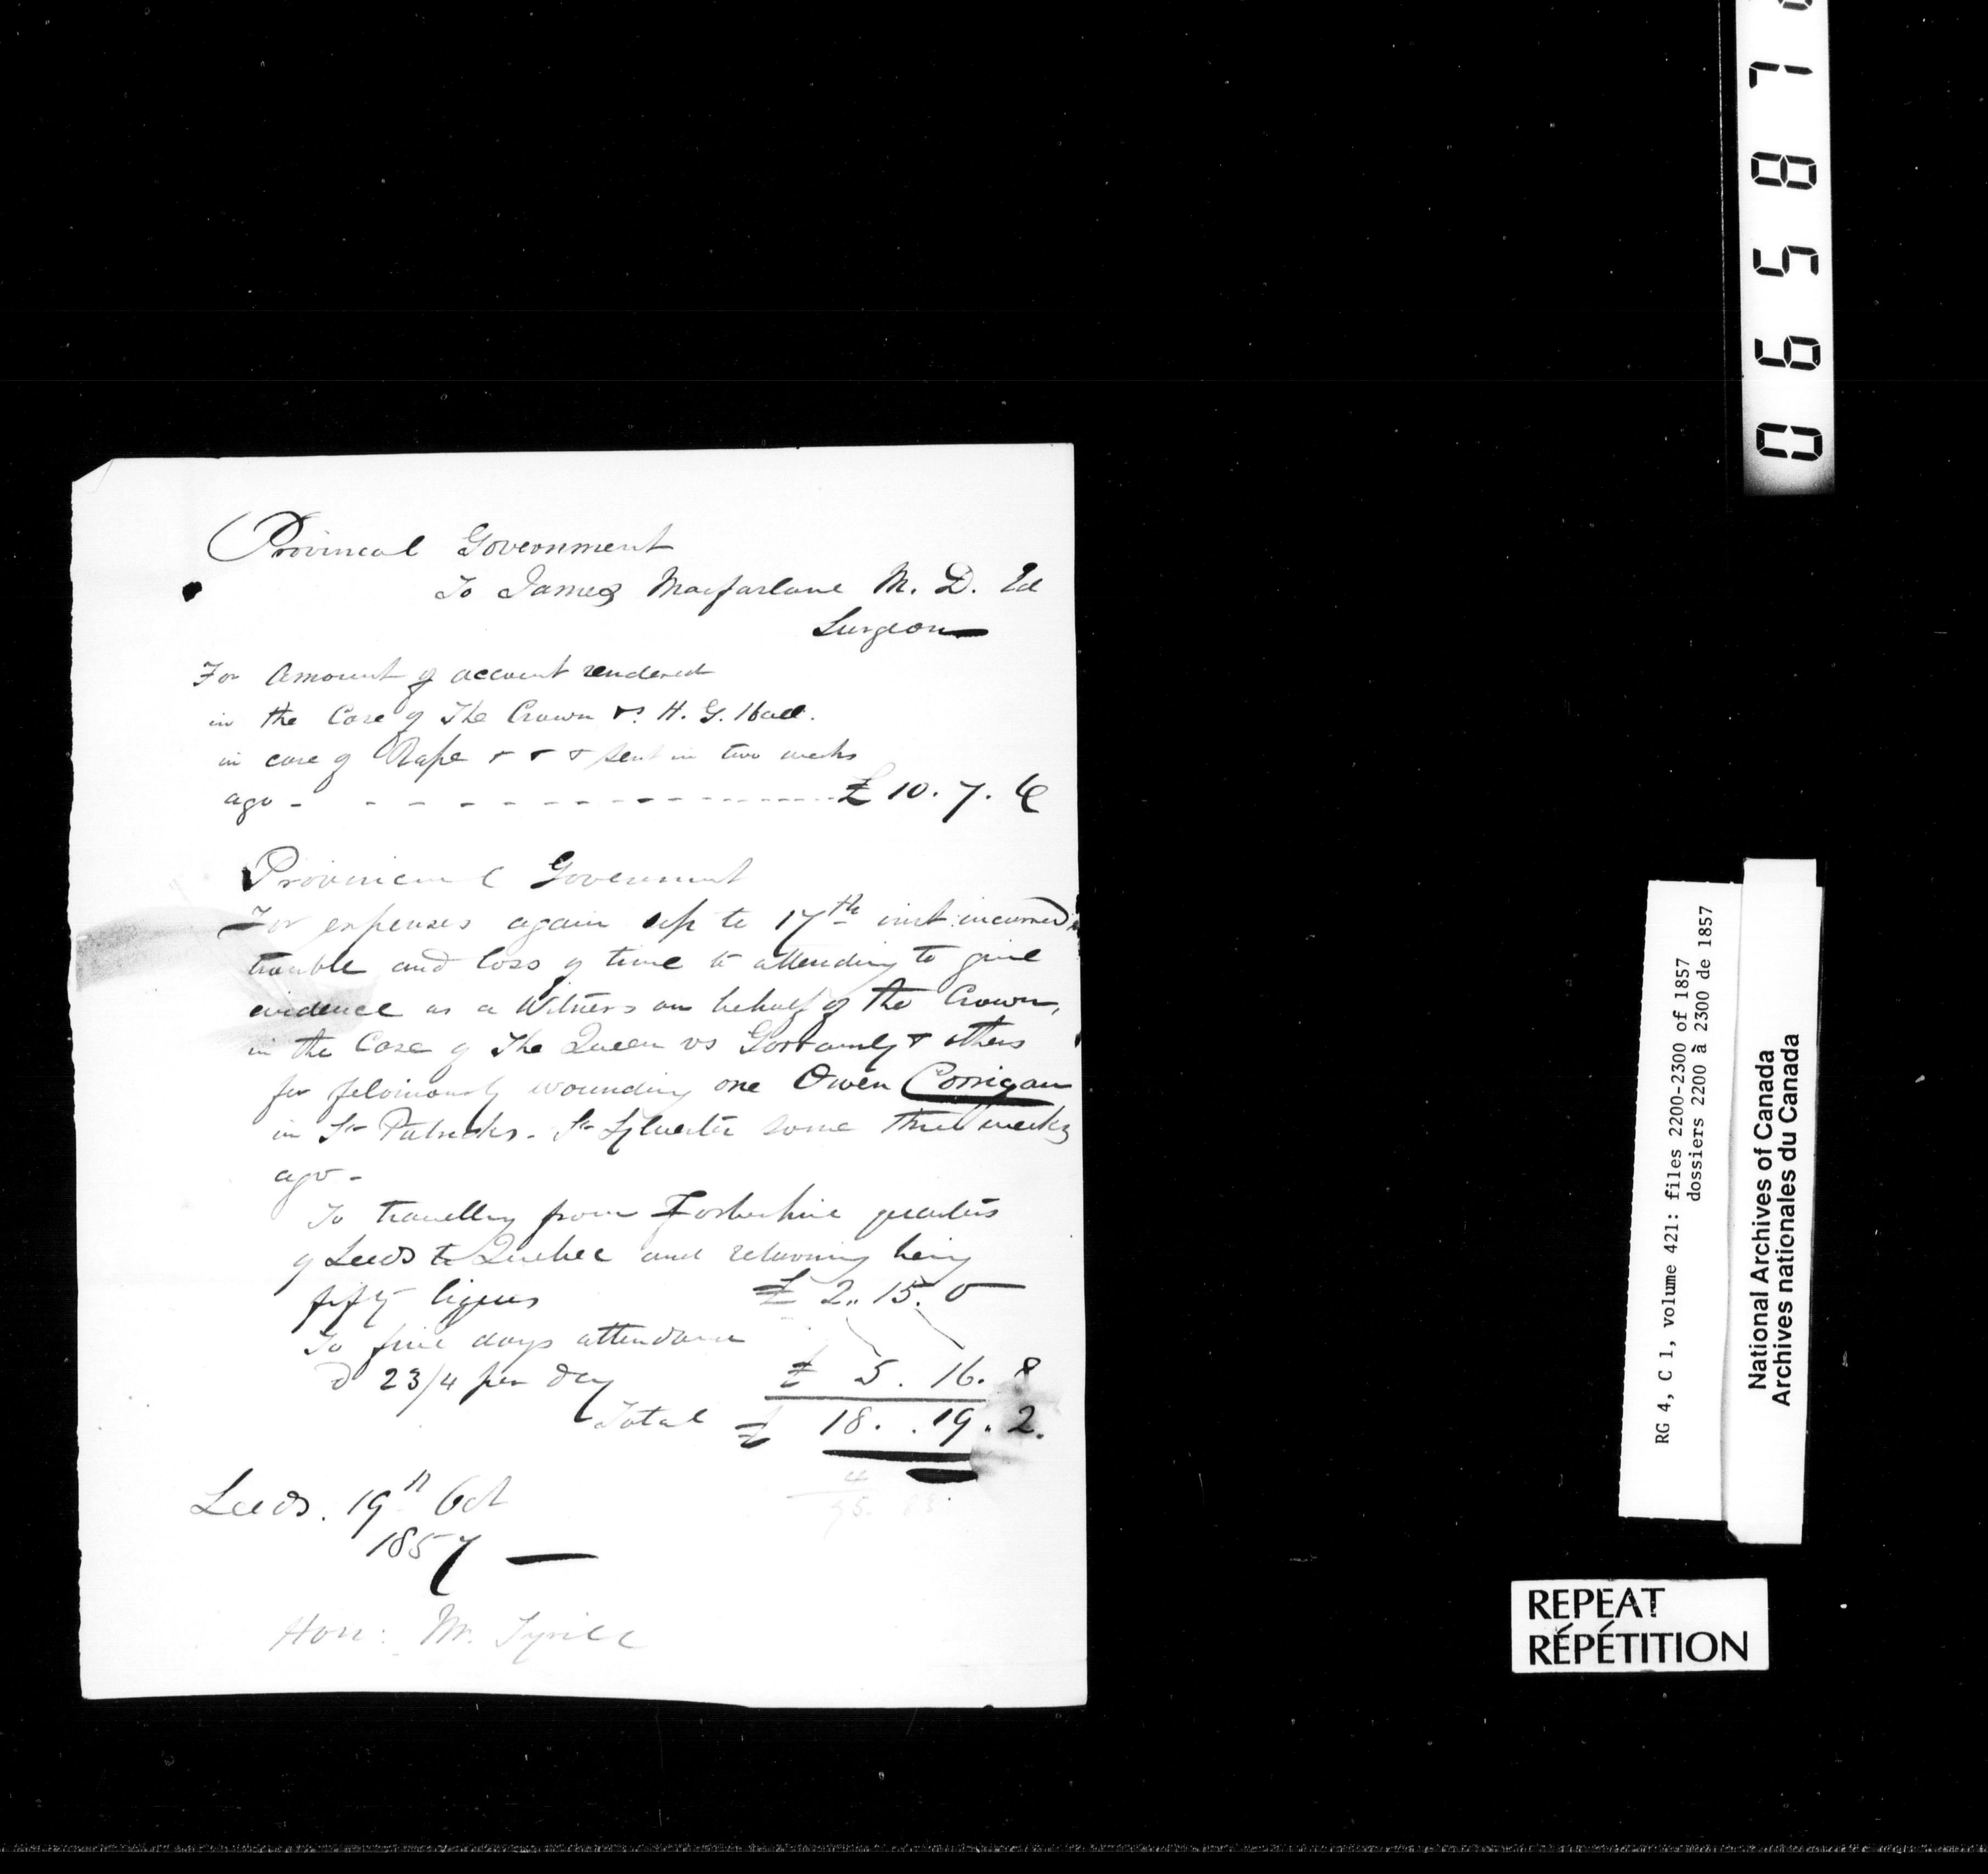 Provincal Government
To James Macfarlane M. D. Ed
Surgeon
For Amount of account rendered
in the Case of The Crown vs H. G. Hall.
in case of Rape + + + sent in two weeks
ago - - - - - - - - - - - - £ 10. 7. 6
Provincial Government
For expenses again up to 17th inst: incurred,
trouble and loss of time to attending to give
evidence as a Witness on behalf of the Crown,
in the Case of The Queen vs & others
for feloniously wounding one Owen Corrigan
in St Patricks. St Sylvester some three weeks
ago -
To travelling from quarters
of Leeds to Quebec and returning being
fifty ligues £ 2.. 15. 0
To five days attendance
@ 23/4 per day £ 5. 16. 8
Total £ 18. . 19. 2.
Leeds. 19th Oct
1857 —
Hon: Mr.
065876
RG 4, C 1, volume 421: files 2200-2300 of 1857
dossiers 2200 à 2300 de 1857
National Archives of Canada
Archives nationales du Canada
REPEAT
RÉPÉTITION